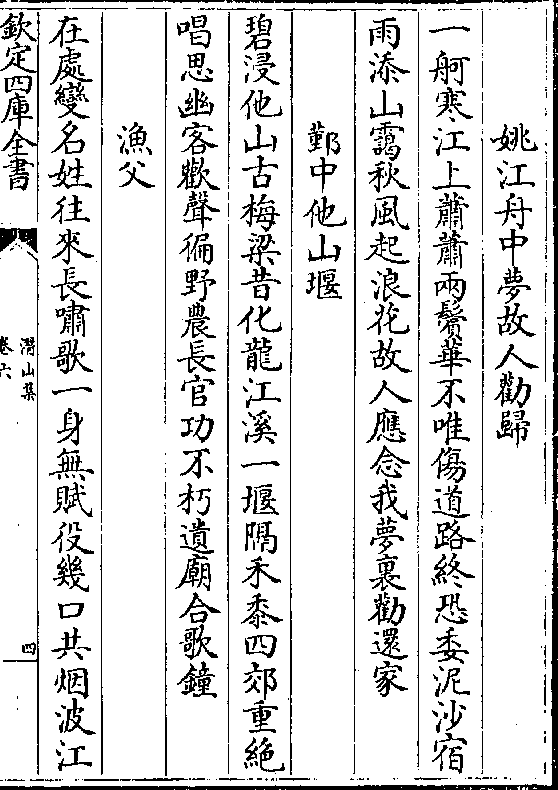 姚江舟中夢故人勸歸
一舸寒江上蕭蕭兩鬢華不唯傷道路終恐委泥沙宿
雨添山靄秋風起浪花故人應念我夢裏勸還家
鄞中他山堰
碧浸他山古梅梁昔化龍江溪一堰隔禾黍四郊重絶
唱思幽客歡聲徧野農長官功不朽遺廟合歌鐘
漁父
在處變名姓往來長嘯歌一身無賦役幾口共烟波江
欽定四庫全書
潛山集
卷六
四